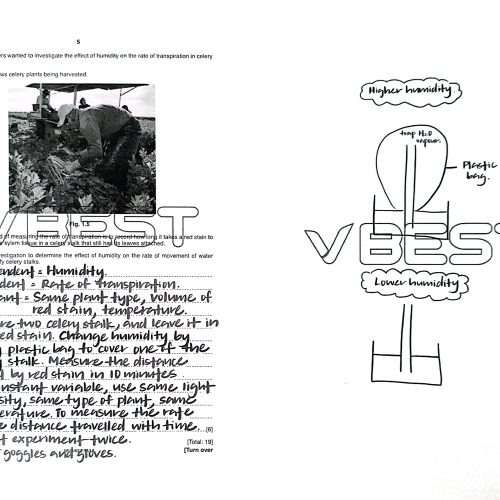 5
ers wanted to investigate the effect of humidity on the rate of transpiration in celery
ws celery plants being harvested.
Fig. 1.5
d of measuring the rate of transpiration is to record how long it takes a red stain to
xylem tissue in a celery stalk that still has its leaves attached.
vestigation to determine the effect of humidity on the rate of movement of water
fy celery stalks.
endent = Humidity.
dent = Rate of Transpiration.
ant = Same plant type, volume of
red stain, temperature.
re two celery stalk, and leave it in
red stain. Change humidity by
plastic bag to cover one of the
stalk. Measure the distance
d by red stain in 10 minutes
nstant variable, use same light
sity, same type of plant, same
erature. To measure the rate
e distance travelled with time.
[6]
t experiment twice.
[Total: 19]
goggles and gloves.
[Turn over
VBEST
Higher humidity
trap H2O
vapour.
Plastic
bag.
VBEST
Lower humidity